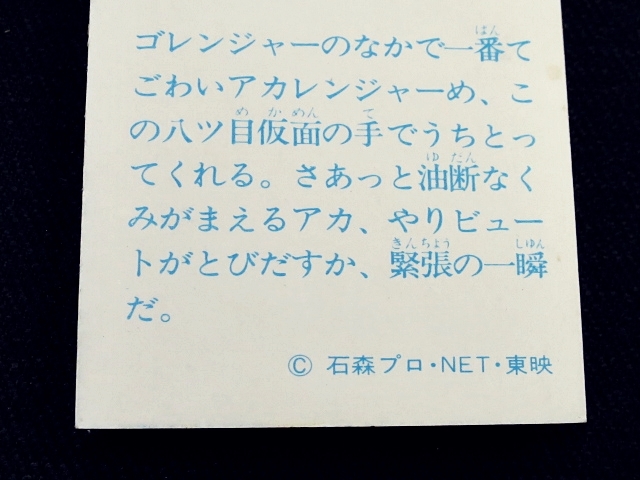 ゴレンジャーのなかで一番て
ごわいアカレンジャーめ、こ
の八ツ目仮面の手でうちとっ
てくれる。さあっと油断なく
みがまえるアカ、やりビュー
トがとびだすか、緊張の一瞬
だ。
© 石森プロ・NET・東映